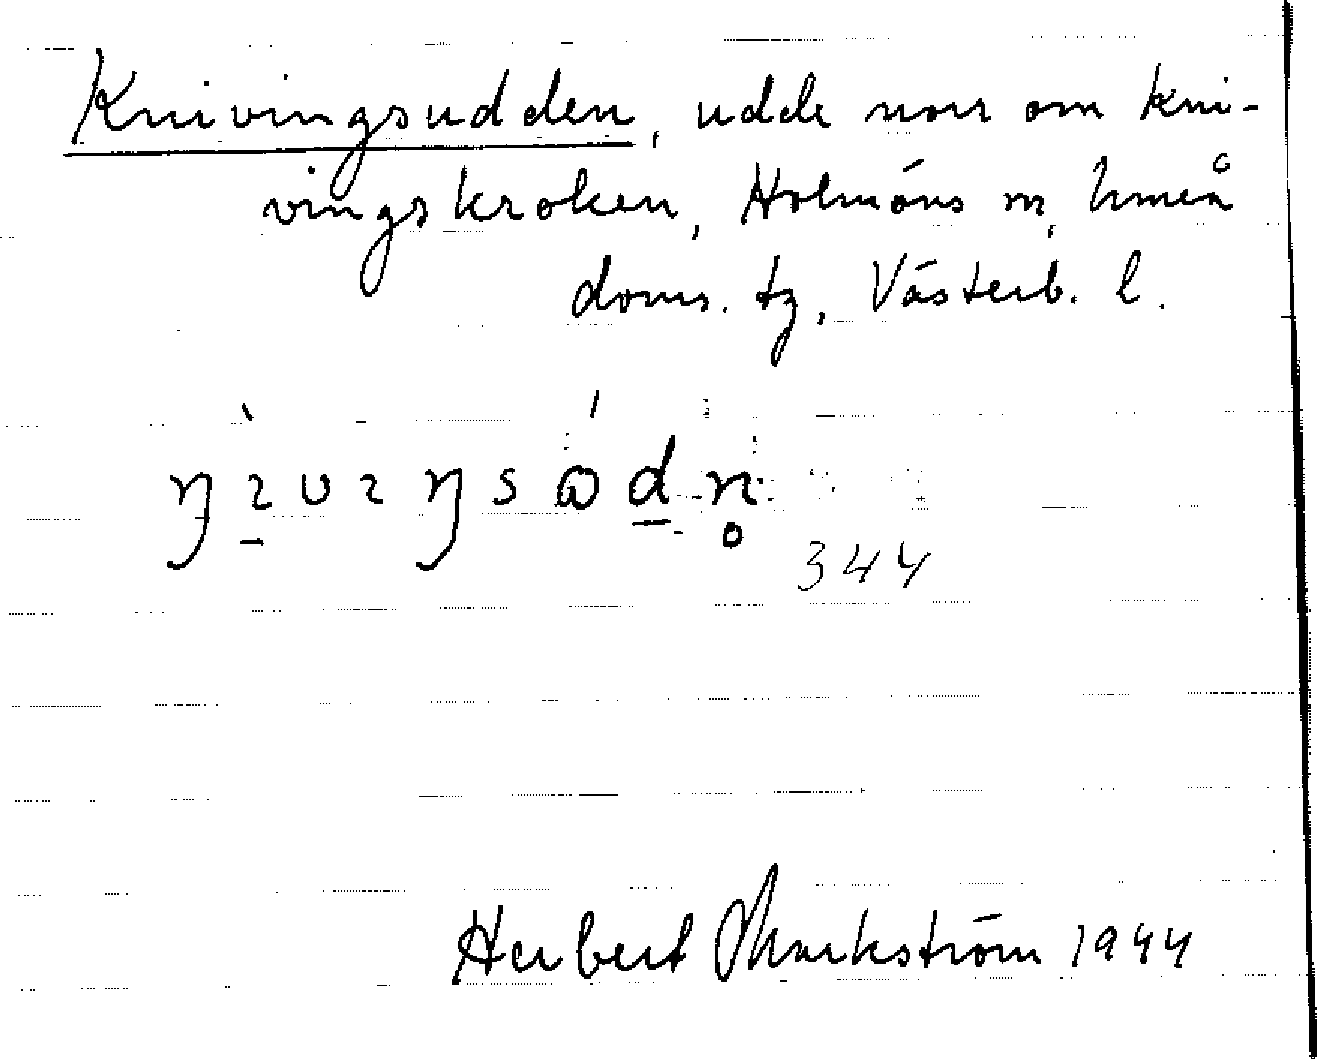 Knivingsudden, udde norr om Kni-
vingskroken, Holmöns sn, Umeå
doms. tg, Västerb. l.
344
Herbert Markström 1944